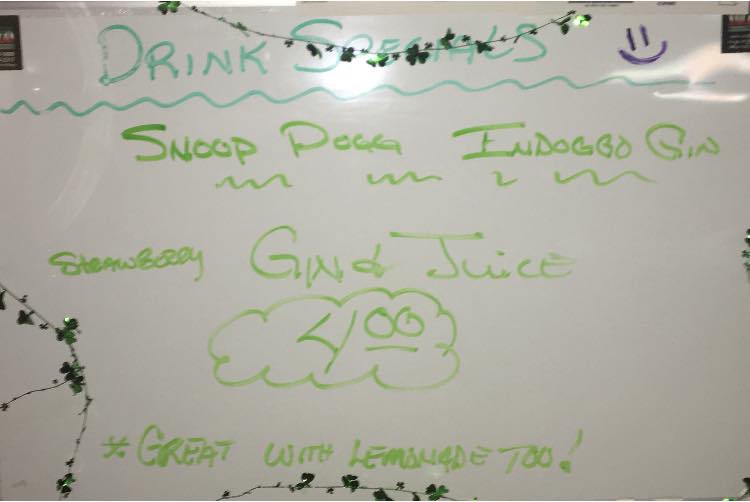 DRINK SPECIALS
SNOOP DOGG INDOGGO GIN
STRAWBERRY GIN & JUICE
4.00
* GREAT WITH LEMONADE TOO!